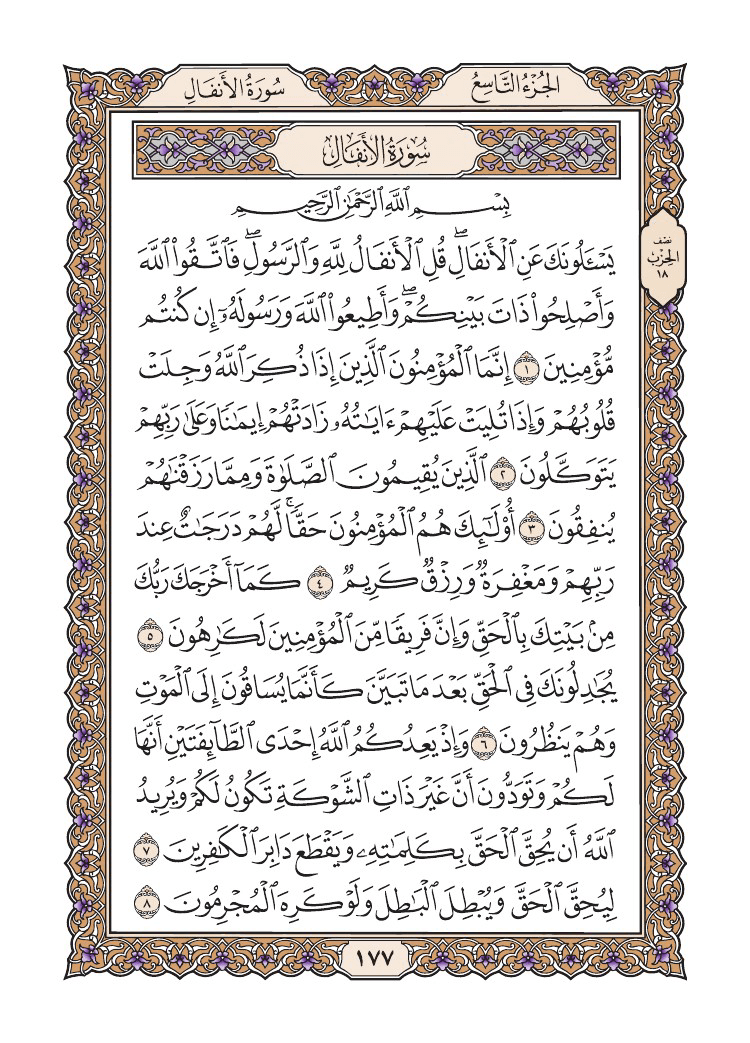 الجُزْءُ التَّاسِعُ
سُورَةُ الأَنفَالِ
سُورَةُ الأَنفَالِ
نصف الحزب ١٨
بِسْمِ ٱللَّهِ ٱلرَّحْمَٰنِ ٱلرَّحِيمِ
يَسْـَٔلُونَكَ عَنِ ٱلْأَنفَالِۖ قُلِ ٱلْأَنفَالُ لِلَّهِ وَٱلرَّسُولِۖ فَٱتَّقُوا۟ ٱللَّهَ
وَأَصْلِحُوا۟ ذَاتَ بَيْنِكُمْۖ وَأَطِيعُوا۟ ٱللَّهَ وَرَسُولَهُۥٓ إِن كُنتُم
مُّؤْمِنِينَ ١ إِنَّمَا ٱلْمُؤْمِنُونَ ٱلَّذِينَ إِذَا ذُكِرَ ٱللَّهُ وَجِلَتْ
قُلُوبُهُمْ وَإِذَا تُلِيَتْ عَلَيْهِمْ ءَايَٰتُهُۥ زَادَتْهُمْ إِيمَٰنًا وَعَلَىٰ رَبِّهِمْ
يَتَوَكَّلُونَ ٢ ٱلَّذِينَ يُقِيمُونَ ٱلصَّلَوٰةَ وَمِمَّا رَزَقْنَٰهُمْ
يُنفِقُونَ ٣ أُو۟لَٰٓئِكَ هُمُ ٱلْمُؤْمِنُونَ حَقًّاۚ لَّهُمْ دَرَجَٰتٌ عِندَ
رَبِّهِمْ وَمَغْفِرَةٌ وَرِزْقٌ كَرِيمٌ ٤ كَمَآ أَخْرَجَكَ رَبُّكَ
مِنۢ بَيْتِكَ بِٱلْحَقِّ وَإِنَّ فَرِيقًا مِّنَ ٱلْمُؤْمِنِينَ لَكَٰرِهُونَ ٥
يُجَٰدِلُونَكَ فِى ٱلْحَقِّ بَعْدَ مَا تَبَيَّنَ كَأَنَّمَا يُسَاقُونَ إِلَى ٱلْمَوْتِ
وَهُمْ يَنظُرُونَ ٦ وَإِذْ يَعِدُكُمُ ٱللَّهُ إِحْدَى ٱلطَّآئِفَتَيْنِ أَنَّهَا
لَكُمْ وَتَوَدُّونَ أَنَّ غَيْرَ ذَاتِ ٱلشَّوْكَةِ تَكُونُ لَكُمْ وَيُرِيدُ
ٱللَّهُ أَن يُحِقَّ ٱلْحَقَّ بِكَلِمَٰتِهِۦ وَيَقْطَعَ دَابِرَ ٱلْكَٰفِرِينَ ٧
لِيُحِقَّ ٱلْحَقَّ وَيُبْطِلَ ٱلْبَٰطِلَ وَلَوْ كَرِهَ ٱلْمُجْرِمُونَ ٨
١٧٧